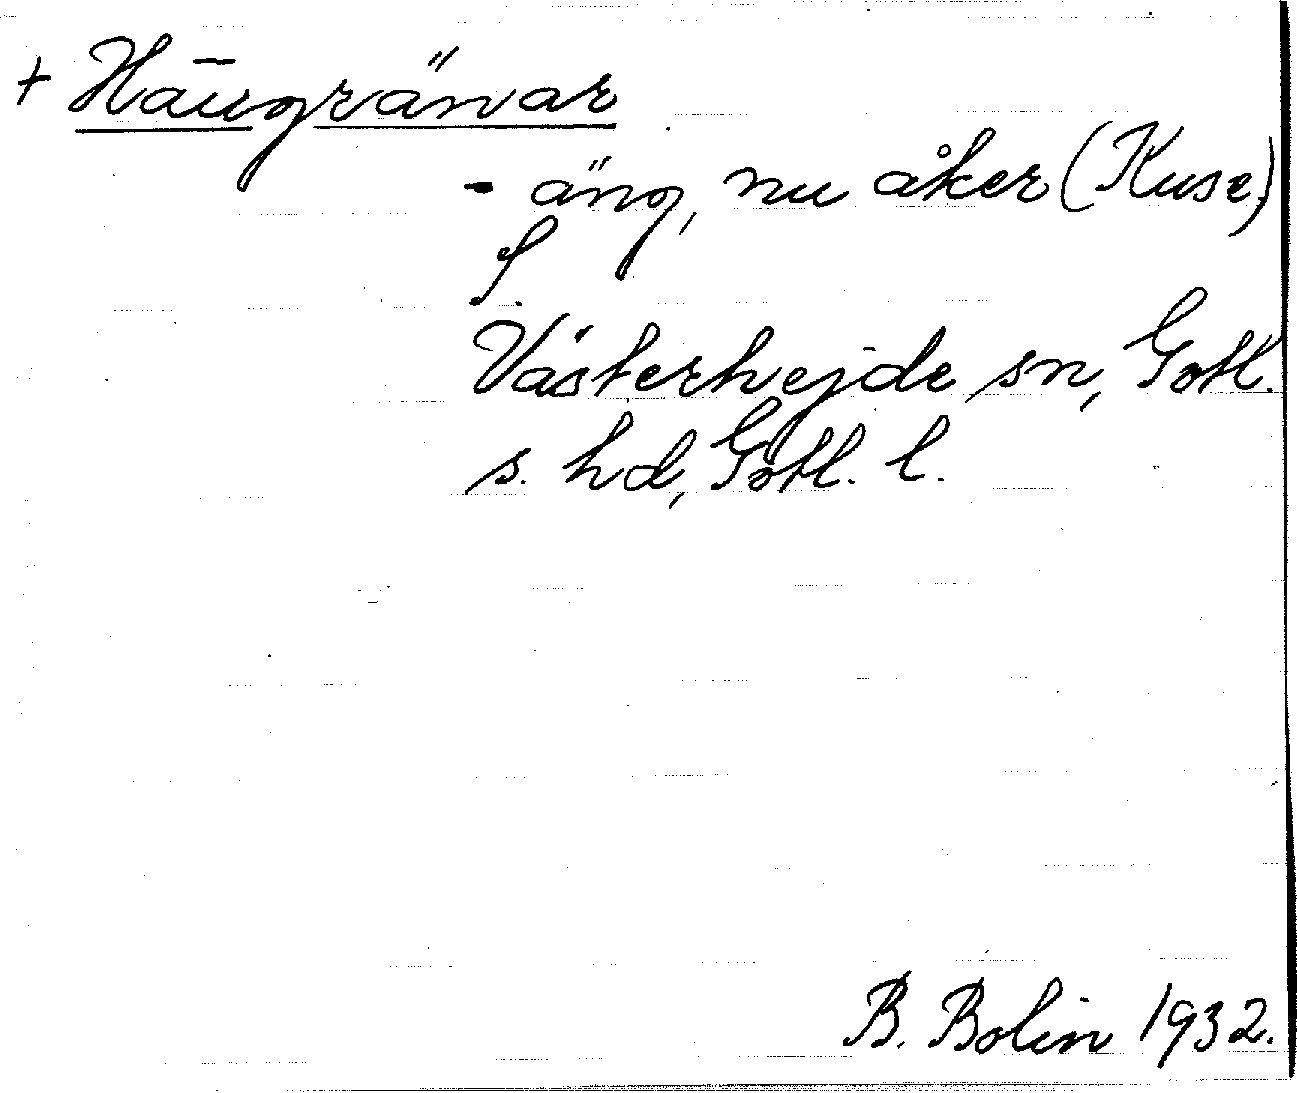 + Haugränar
- äng, nu åker (Kuse)
f
Västerhejde sn, Gotl.
s. hd, Gotl. l.
B. Bolin 1932.